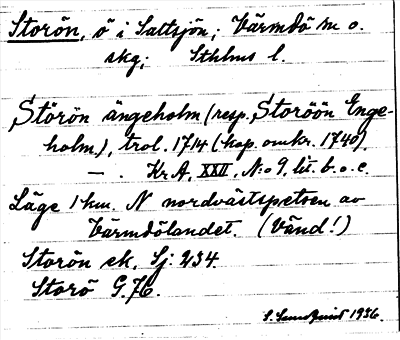 Storön, ö i Saltsjön; Värmdö sn o.
skg; Sthlms l.
Störön ängeholm (resp. Storöön Enge-
holm), trol. 1714 (kop. omkr. 1740).
— . Kr.A, XXII, N:o 9, lit. b. o. c.
Läge 1 km. N nordvästspetsen av
Värmdölandet. (Vänd!)
Storön ek. Sj: 234.
Storö G. 76.
1936.